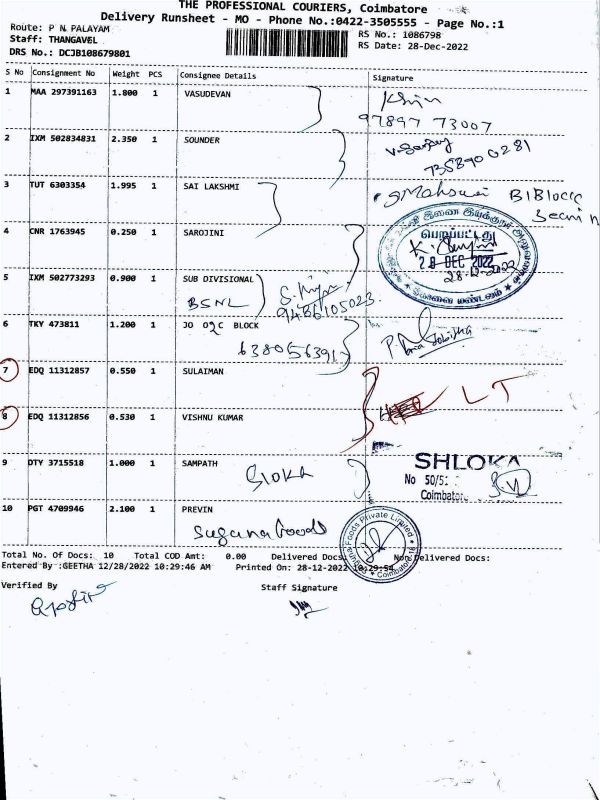 THE PROFESSIONAL COURIERS, Coimbatore
Delivery Runsheet - MO - Phone No.:0422-3505555 - Page No.:1
Route: P N PALAYAM
Staff: THANGAVEL
DRS No.: DCJB108679801
RS No.: 1086798
RS Date: 28-Dec-2022
S No Consignment No Weight PCS Consignee Details Signature
1 MAA 297391163 1.800 1 VASUDEVAN
97897 73007
2 IXM 502834831 2.350 1 SOUNDER
735890 0281
3 TUT 6303354 1.995 1 SAI LAKSHMI
B1 Block
4 CNR 1763945 0.250 1 SAROJINI
பெறப்பட்டது
28 DEC 2022
28-12-2022
கோவை மண்டலம்
5 IXM 502773293 0.900 1 SUB DIVISIONAL
BSNL
9486105023
6 TKY 473811 1.200 1 JO O2C BLOCK
6380563917
7 EDQ 11312857 0.550 1 SULAIMAN
LT
8 EDQ 11312856 0.530 1 VISHNU KUMAR
9 DTY 3715518 1.000 1 SAMPATH
SLOKA
SHLOKA
No 50/51
Coimbator
10 PGT 4709946 2.100 1 PREVIN
Suguna foods
Foods Private Limited
Coimbatore
Total No. Of Docs: 10 Total COD Amt: 0.00 Delivered Docs: Non Delivered Docs:
Entered By :GEETHA 12/28/2022 10:29:46 AM Printed On: 28-12-2022 10:29:54
Verified By Staff Signature